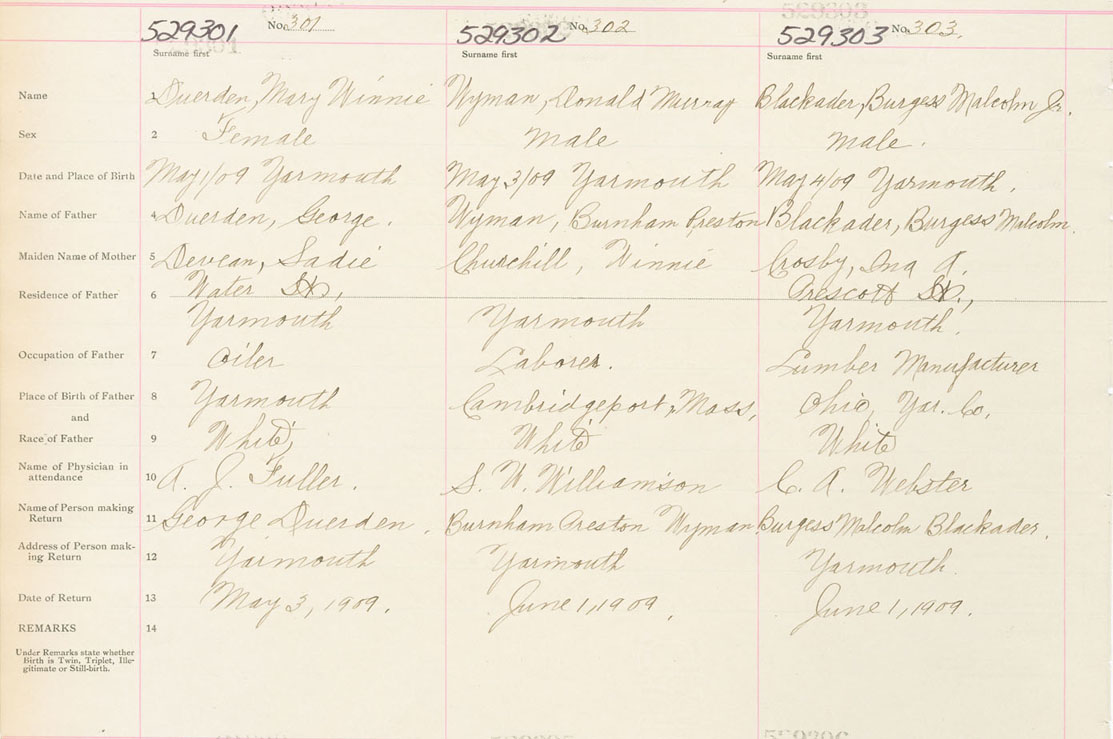 529301 No. 301 529302 No. 302 529303 No. 303.
Surname first Surname first Surname first
Name 1 Duerden, Mary Winnie Wyman, Donald Murray Blackader, Burgess Malcolm Jr.
Sex 2 Female Male Male.
Date and Place of Birth 3 May 1/09 Yarmouth May 3/09 Yarmouth May 4/09 Yarmouth.
Name of Father 4 Duerden, George. Wyman, Burnham Preston Blackader, Burgess Malcolm.
Maiden Name of Mother 5 Devean, Sadie Churchill, Winnie Crosby, Ina A.
Residence of Father 6 Water St., Prescott St.,
Yarmouth Yarmouth Yarmouth.
Occupation of Father 7 Oiler Laborer. Lumber Manufacturer
Place of Birth of Father 8 Yarmouth Cambridgeport, Mass, Ohio, Yar. Co.
and
Race of Father 9 White, White White
Name of Physician in
attendance 10 A. J. Fuller. S. W. Williamson C. A. Webster
Name of Person making
Return 11 George Duerden. Burnham Preston Wyman Burgess Malcolm Blackader.
Address of Person mak-
ing Return 12 Yarmouth Yarmouth Yarmouth.
Date of Return 13 May 3, 1909. June 1, 1909, June 1, 1909.
REMARKS 14
Under Remarks state whether
Birth is Twin, Triplet, Ille-
gitimate or Still-birth.